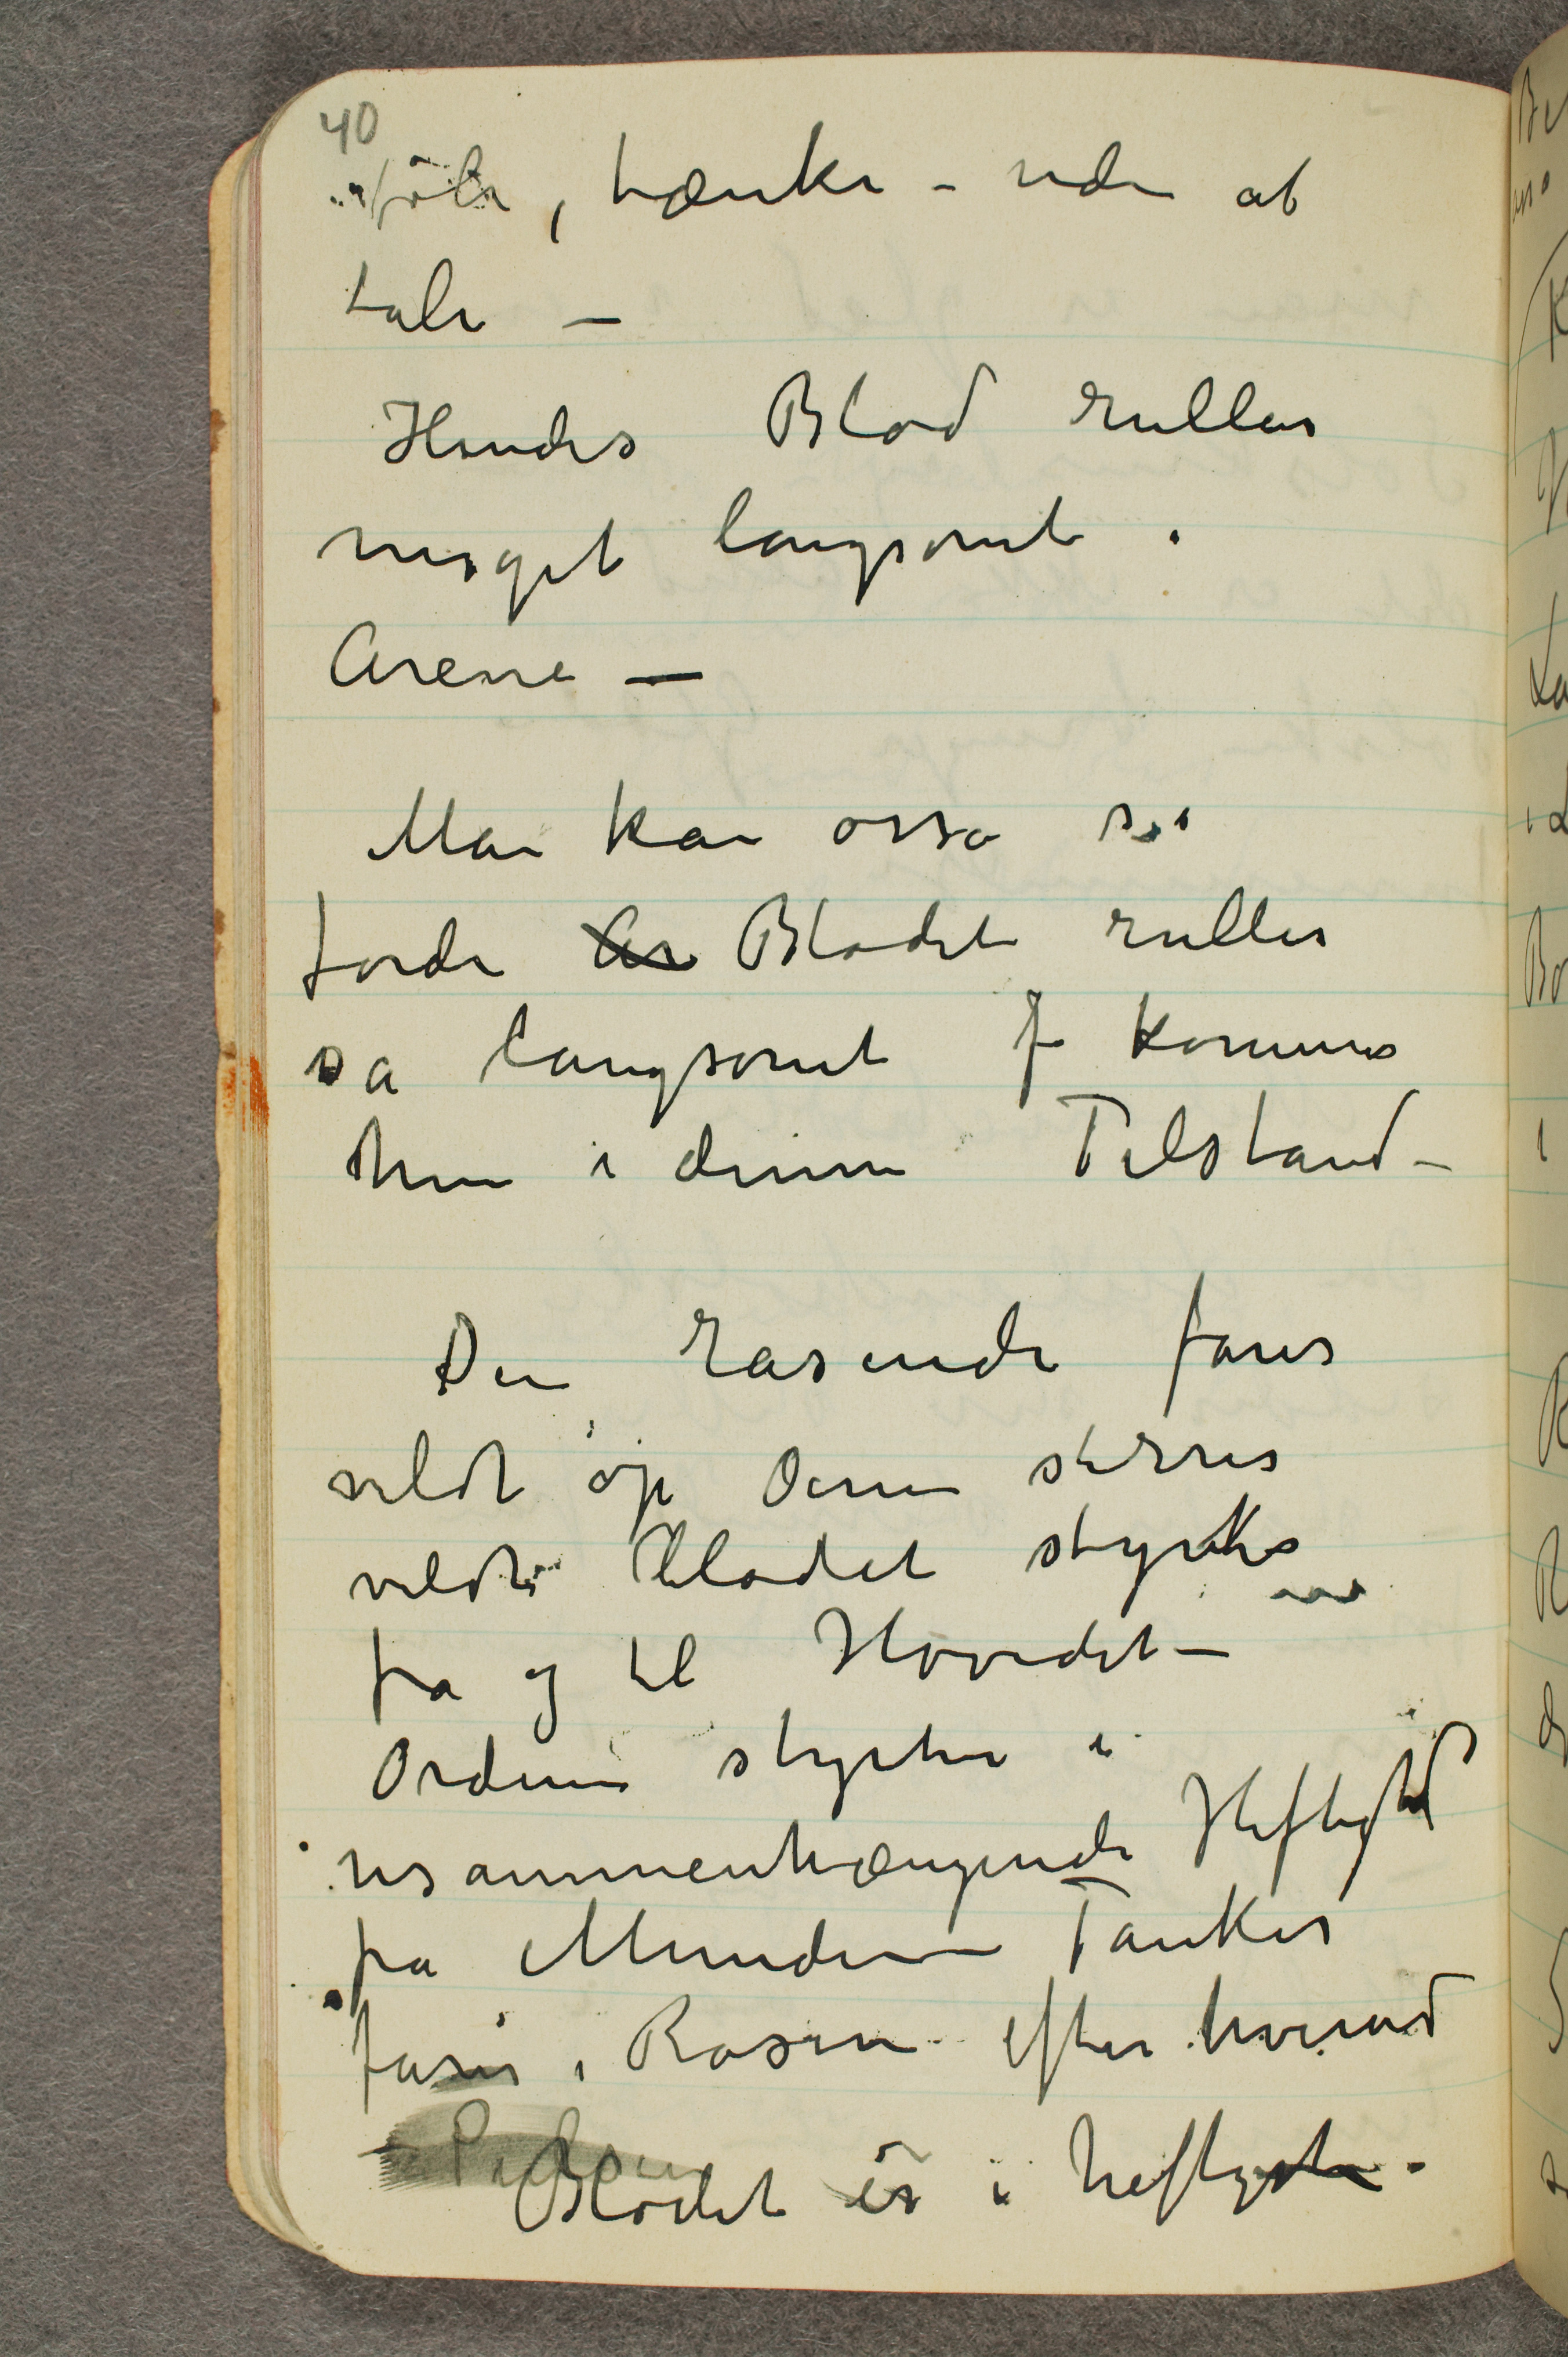 40
føle, tænke – uden at
tale –
Hendes Blod ruller
meget langsomt i
Arene –
Man kan osså si
fordi Ar Blodet ruller
så langsomt f kommer
hun i denne Tilstand –
Den rasende farer
vildt op Øinene stirrer
vildt Blodet styrter
fra og til Hovedet –
Ordene styrter i
usammenhængende Heftighed
fra Munden Tanker
farer i Rasen efter hverand
Blodet er i heftigste